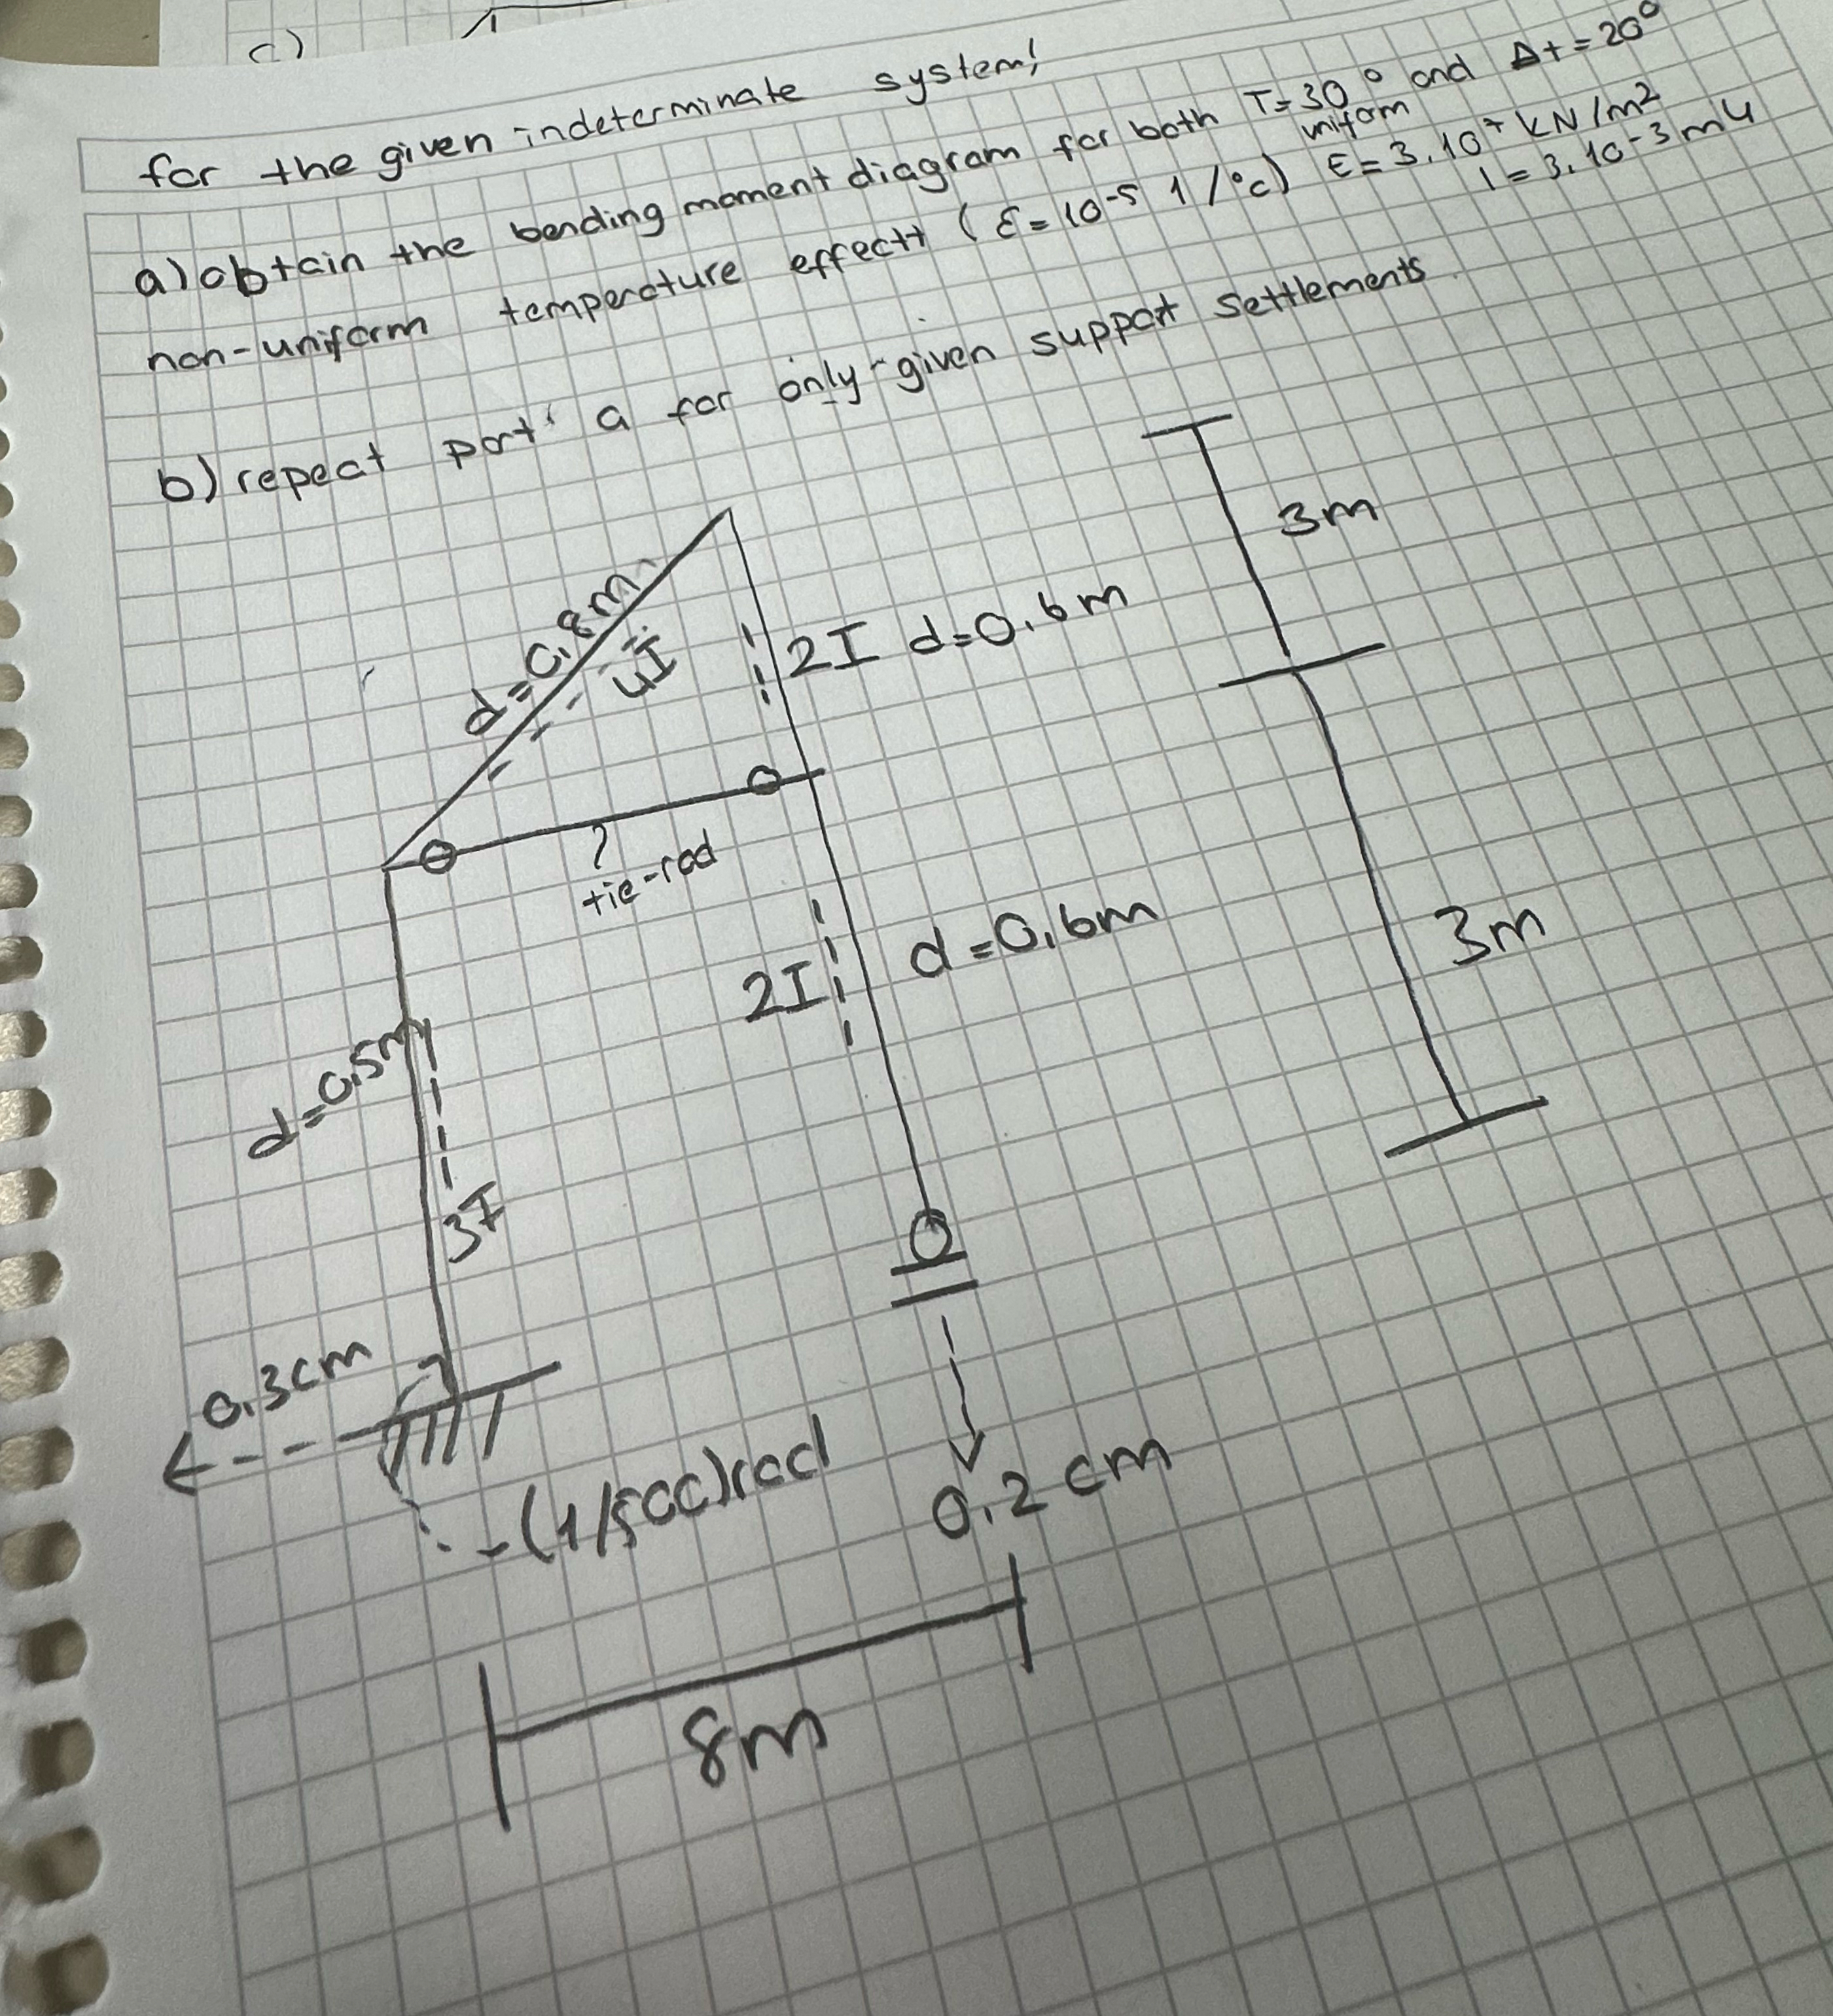 c)
for the given indeterminate system!
a) obtain the bending moment diagram for both T=30° and Δt=20°
uniform
non-uniform temperature effectt (ε=10⁻⁵ 1/°c) E=3.10⁷ kN/m²
I=3.10⁻³ m4
b) repeat part a for only given support settlements.
3m
d=0.8m
4I
2I d=0.6m
tie-rod
2I
d=0.6m
3m
d=0.5m
3I
0.3cm
-(1/500)rad
0.2 cm
8m